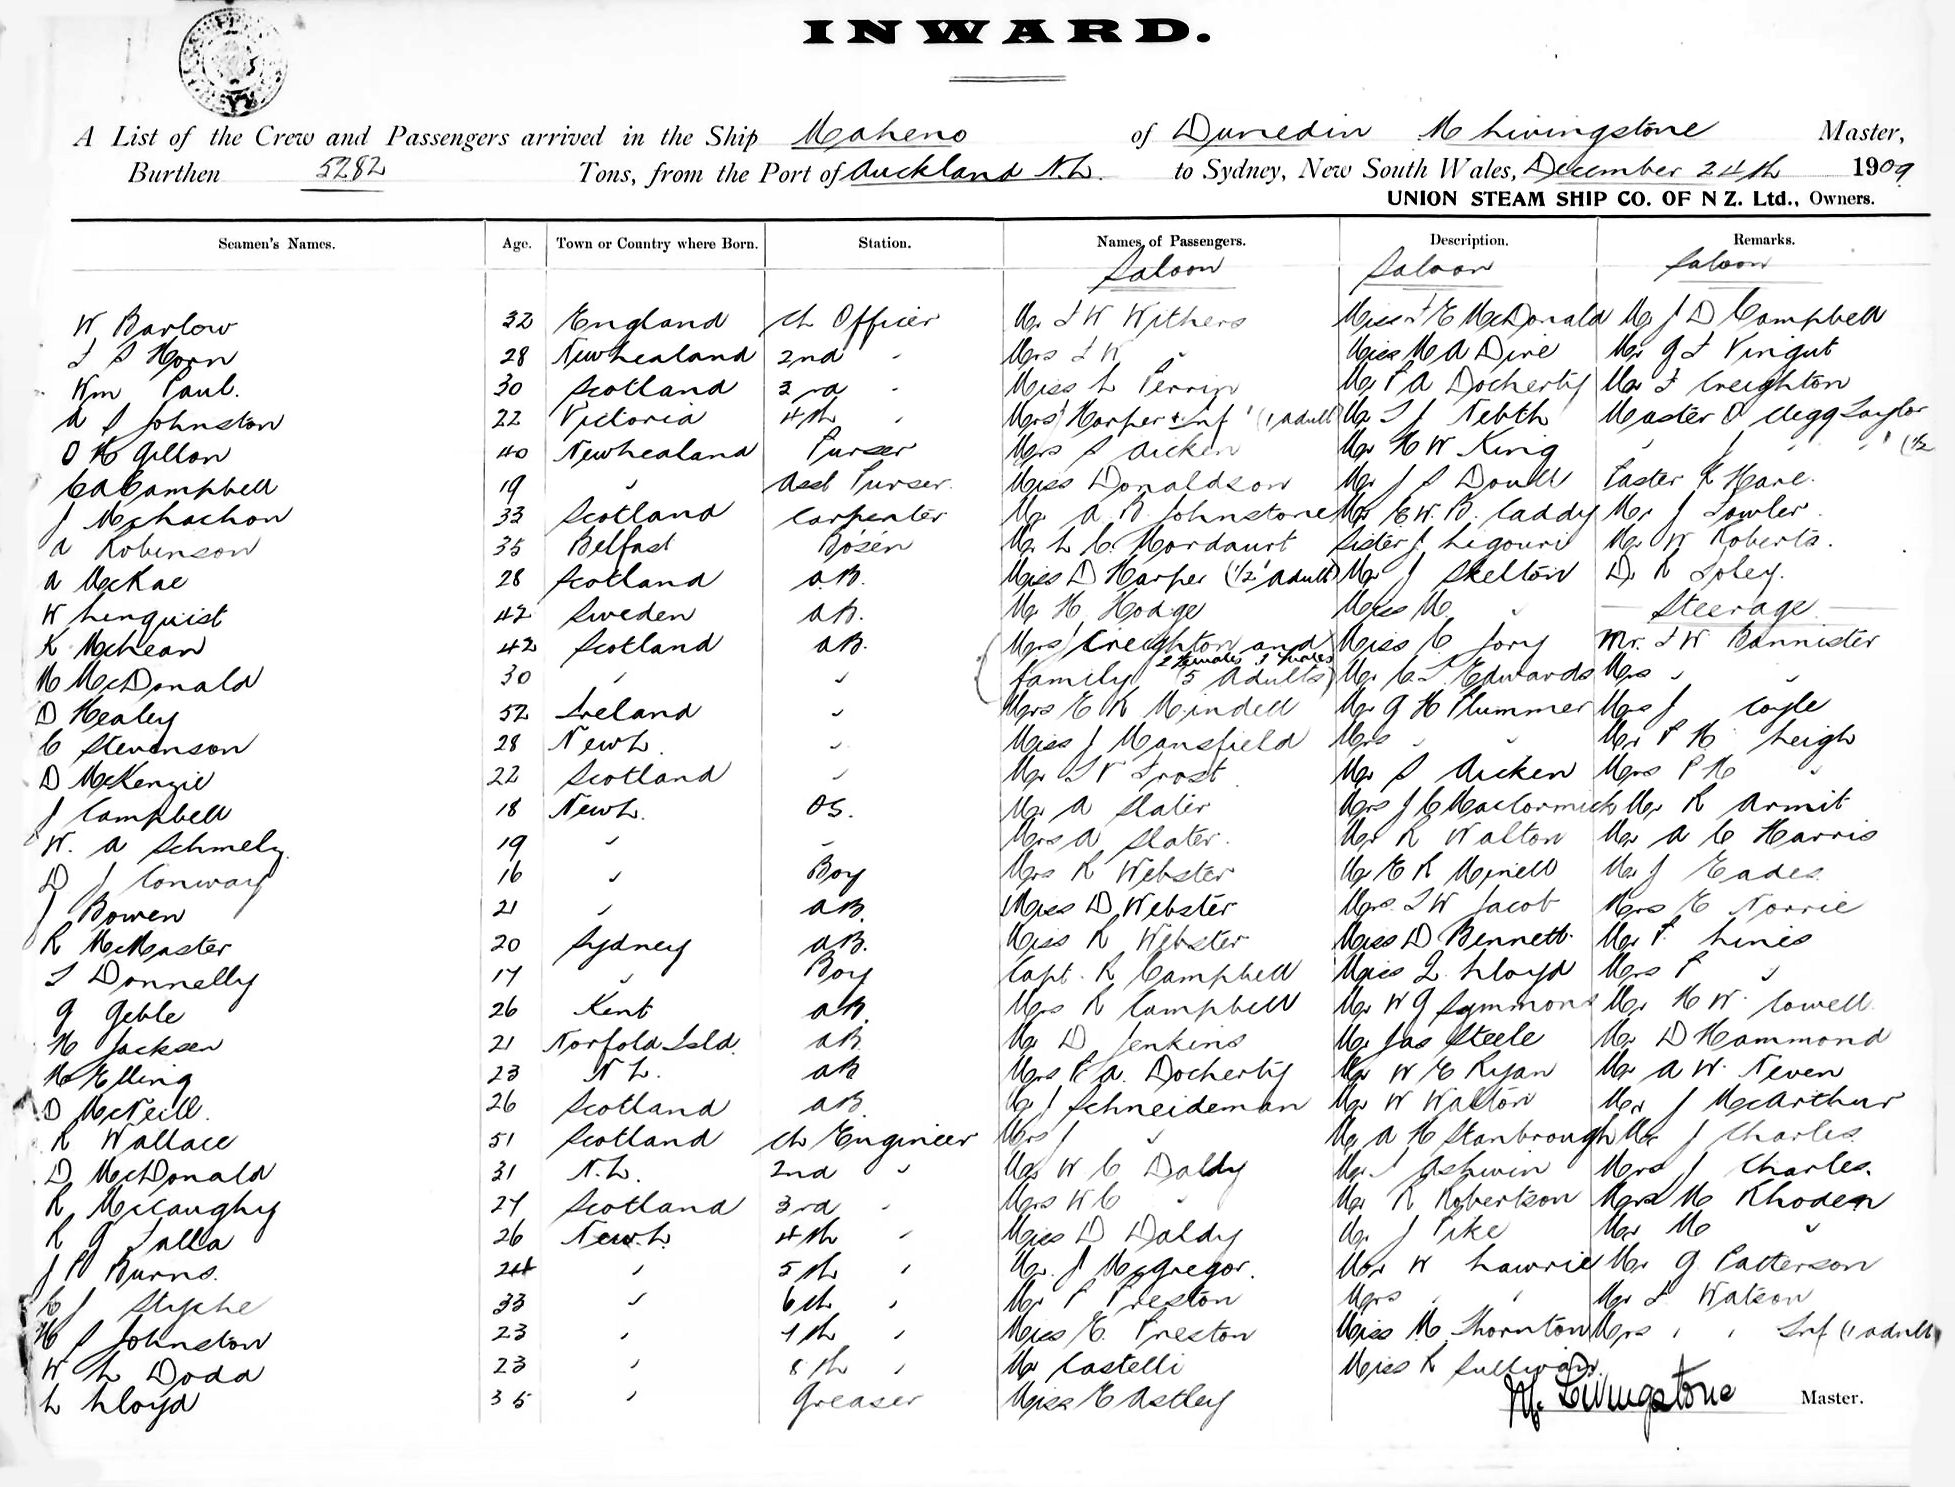 INWARD.
A List of the Crew and Passengers arrived in the Ship Maheno of Dunedin M Livingstone Master,
Burthen 5282 Tons, from the Port of Auckland N.Z. to Sydney, New South Wales, December 24th 1909
UNION STEAM SHIP CO. OF N Z. Ltd., Owners.
Seamen's Names. Age. Town or Country where Born. Station. Names of Passengers. Description. Remarks.
Saloon Saloon Saloon
W Barlow 32 England Ch Officer Mr F W Withers Miss F E McDonald Mr J D Campbell
F S Horn 28 New Zealand 2nd " Mrs F W " Miss M A Dire Mr G F Vingut
Wm Paul. 30 Scotland 3rd " Miss L Perrin Mr P A Docherty Mr F Creighton
A S Johnston 22 Victoria 4th " Mrs Harper + Inf (1 adult) Mr T J Nebth Master O Clegg Taylor
O H Gillon 40 New Zealand Purser Mrs S Aicken Mr H W King " J " " (½
C A Campbell 19 " Asst Purser. Miss Donaldson Mr J S Doull Paster R Hare.
J McLachon 33 Scotland Carpenter Mr A B Johnstone Mr E W. B. Caddy Mr J Fowler.
A Robinson 35 Belfast Bosen Mr L C. Mordaunt Sister J Ligouri Mr W Roberts.
A McRae 28 Scotland AB. Miss D Harper (½ adult) Mr J Skelton Dr R Foley.
W Lenquist 42 Sweden AB. Mr H Hodge Miss M " Steerage
K McLean 42 Scotland AB. Mrs Creighton and Miss C Jory Mr. F W Bannister
M McDonald 30 " " family 2 females 3 males 5 Adults) Mr C T. Edwards Mrs " "
D Healey 52 Ireland " Mrs E R Mindell Mr G H Plummer Mrs J Coyle
C Stevenson 28 New Z. " Miss J Mansfield Mrs " " Mr P H Leigh
D McKenzie 22 Scotland " Mr T V Frost Mr S Aicken Mrs P H "
J Campbell 18 New Z. OS. Mr A Slater Mrs J C MacCormick Mr R Armit
W. A Schmely. 19 " " Mrs A Slater. Mr R Walton Mr A C Harris
D J Conway 16 " Boy Mrs R Webster Mr E R Minell Mr J Eades.
J Bowen 21 " AB. Miss D Webster Mrs. F W Jacob Mrs E Norrie
R McMaster 20 Sydney AB. Miss R Webster Miss D Bennett. Mr P. Lines
T Donnelly 17 " Boy Capt. R Campbell Miss L. Lloyd Mrs P "
G Geble 26 Kent AB. Mrs R Campbell Mr W G Symmons Mr H W. Cowell
H Jacksen 21 Norfolk Isld. AB. Mr D Jenkins Mr Jas Steele Mr D Hammond
H Elling 23 N Z. AB Mrs P A. Docherty Mr W E Ryan Mr A W. Neven
D McNeill. 26 Scotland AB. Mr J Schneideman Mr W Walton Mr J McArthur
R Wallace 51 Scotland Ch Engineer Mrs J " Mr A H Stanbrough Mr J Charles.
D McDonald 31 N.Z. 2nd " Mr W C Daldy Mr J Ashwin Mrs J Charles.
R McCaughy 27 Scotland 3rd " Mrs W C " Mr R Robertson Mrs M Rhoden
R G Talla 26 New Z. 4th " Miss D Daldy Mr J Pike Mr M "
J P Burns. 24 " 5th " Mr. J McGregor. Mr W Lawrie Mr G Patterson
C J Styche 33 " 6th " Mr P Preston Mrs " " Mr F Watson
H S Johnston 23 " 7th " Miss E. Preston Miss M Thornton Mrs " " Inf (1 adult)
W L Dodd 23 " 8th " Mr Castelli Miss R Sullivan
L Lloyd 35 " Greaser Miss E Astley M. Livingstone Master.